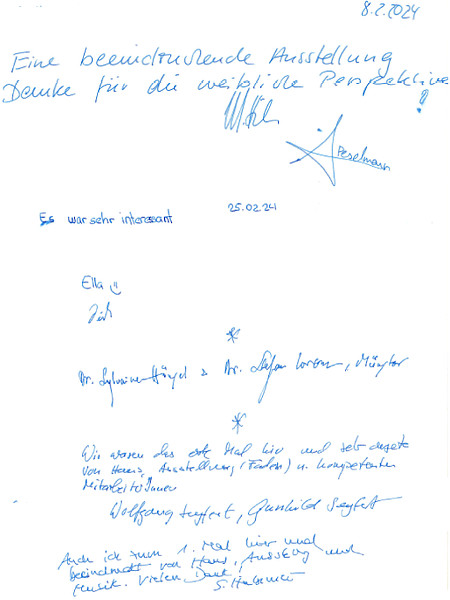 8.2.2024
Eine beeindruckende Ausstellung
Danke für die weibliche Perspektive!
Peselmann
25.02.24
Es war sehr interessant
Ella
*
Dr. Sylvaine & Dr. Stefan, Münster
*
Wir waren das erste Mal hier und sehr angetan
von Haus, Ausstellung (Faden) u. kompetenten
MitarbeiterInnen
Wolfgang Seyfert, Gunhild Seyfert
Auch ich zum 1. Mal hier und
beeindruckt von Haus, Ausstellung und
Musik. Vielen Dank!
S.